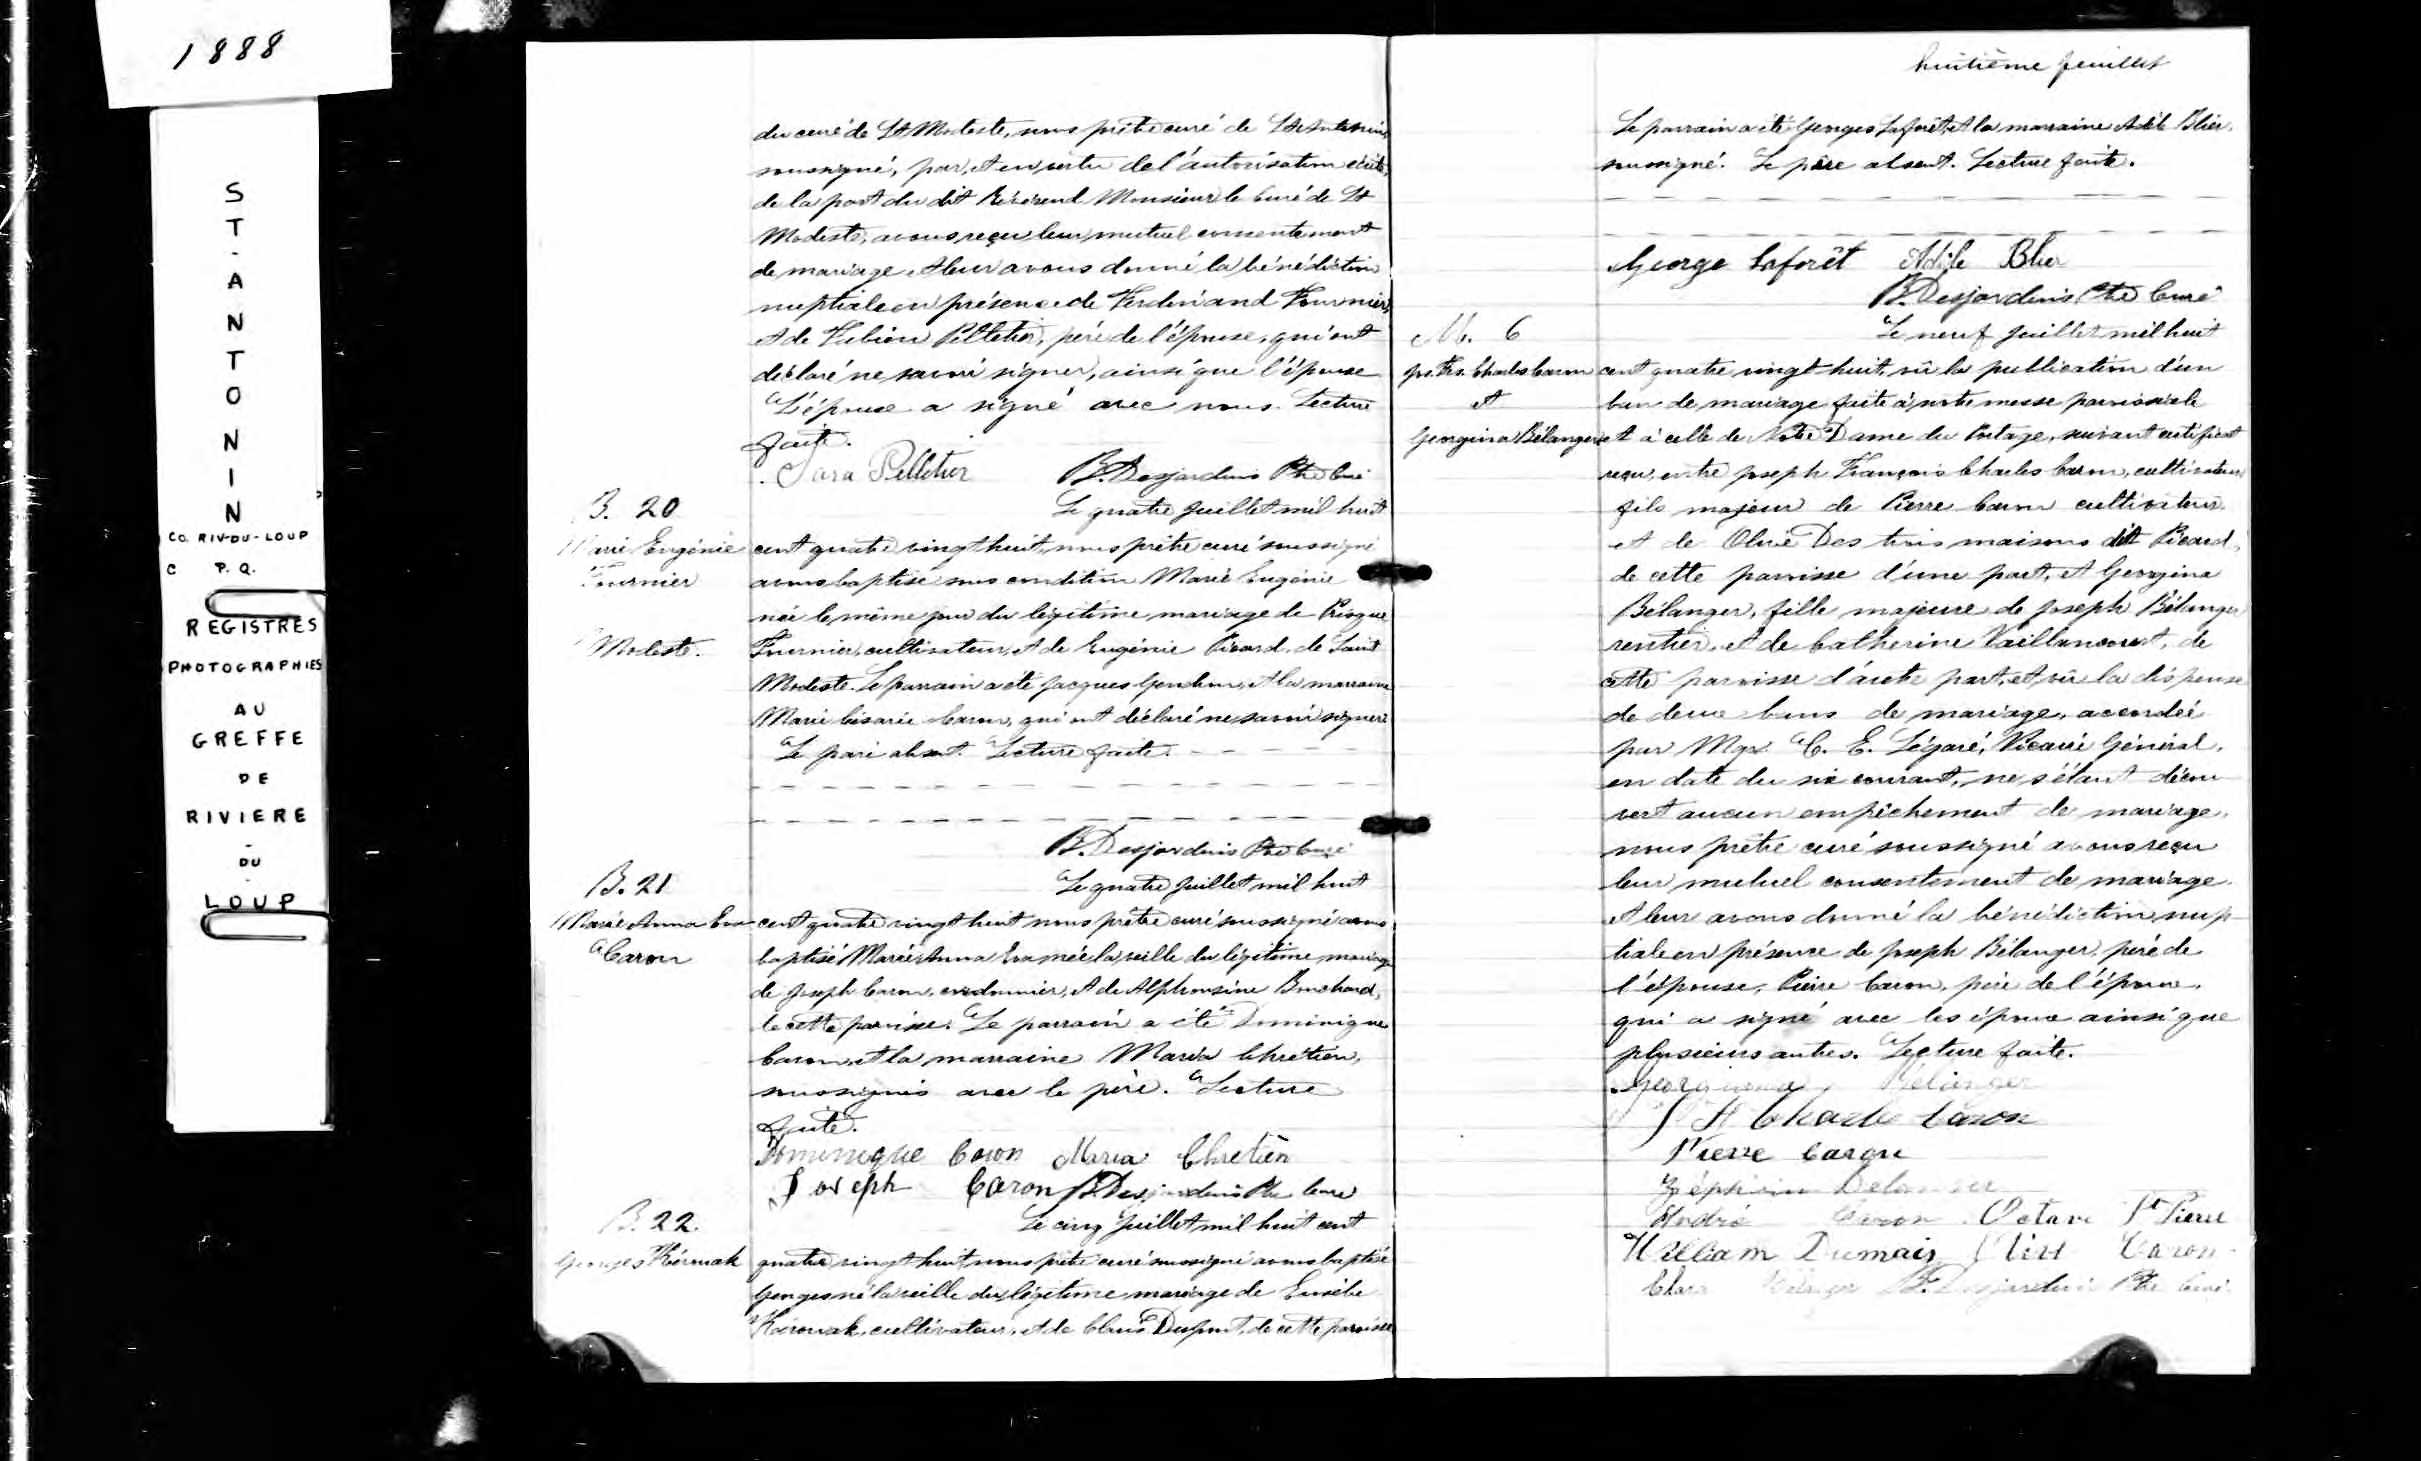 1888
ST-ANTONIN
CO. RIV-DU-LOUP
C P.Q.
REGISTRES
PHOTOGRAPHIES
AU
GREFFE
DE
RIVIERE
-
DU
-
LOUP
du curé de St Modeste, nous prêtre curé de St Antonin
soussigné, par, et en vertu de l'autorisation écrite,
de la part du dit Révérend Monsieur le Curé de St
Modeste, avons reçu leur mutuel consentement
de mariage et leur avons donné la bénédiction
nuptiale en présence de Ferdinand Fournier,
et de Fabien Pelletier, père de l'épouse, qui ont
déclaré ne savoir signer, ainsi que l'époux
L'épouse a signé avec nous. Lecture
faite.
Sara Pelletier B. Desjardins Ptre Curé
B. 20
Marie Eugénie
Fournier
Modeste.
Le quatre juillet mil huit
cent quatre vingt huit, nous prêtre curé soussigné
avons baptisé sous condition Marie Eugénie
née le même jour du légitime mariage de Prisque
Fournier, cultivateur, et de Eugénie Picard, de Saint
Modeste. Le parrain a été Jacques Gendron, et la marraine
Marie Césarie Caron, qui ont déclaré ne savoir signer.
Le père absent. Lecture faite.
B. Desjardins Ptre Curé
B. 21
Marie Anna Eva
Caron
Le quatre juillet mil huit
cent quatre vingt huit nous prêtre curé soussigné avons
baptisé Marie Anna Eva née la veille du légitime mariage
de Joseph Caron, cordonnier, et de Alphonsine Bouchard,
de cette paroisse. Le parrain a été Dominique
Caron, et la marraine Maria Chrétien,
soussignés avec le père. Lecture
faite.
Dominique Caron Maria Chretien
Joseph Caron B. Desjardins Ptre Curé
B. 22.
Georges Kérouak
Le cinq juillet mil huit cent
quatre vingt huit, nous prêtre curé soussigné avons baptisé
Georges né la veille du légitime mariage de Eusèbe
Kérouak, cultivateur, et de Clara Dupont, de cette paroisse
huitième feuillet
Le parrain a été Georges Laforêt, et la marraine Adèle Blier,
soussigné. Le père absent. Lecture faite.
George Laforêt Adèle Blier
B. Desjardins Ptre Curé
M. 6
Jos. Frs. Charles Caron
et
Georgina Bélanger
Le neuf juillet mil huit
cent quatre vingt-huit, vû la publication d'un
ban de mariage faite à notre messe paroissiale
et à celle de Notre Dame du Portage, suivant certificat
reçu, entre Joseph François Charles Caron, cultivateur
fils majeur de Pierre Caron cultivateur
et de Olive Des trois maisons dit Picard,
de cette paroisse d'une part, et Georgina
Bélanger, fille majeure de Joseph Bélanger
rentier, et de Catherine Vaillancourt, de
cette paroisse d'autre part, et vû la dispense
de deux bans de mariage, accordée
par Mgr. C. E. Légaré, Vicaire Général,
en date du six courant, ne s'étant décou
vert aucun empêchement de mariage,
nous prêtre curé soussigné avons reçu
leur mutuel consentement de mariage
et leur avons donné la bénédiction nup-
tiale en présence de Joseph Bélanger, père de
l'épouse, Pierre Caron, père de l'époux,
qui a signé avec les époux ainsi que
plusieurs autres. Lecture faite.
Georgina Bélanger
Charle Caron
Pierre Caron
Zéphirin Belanger
André Caron Octave St Pierre
William Dumais Caron
Clara Belanger B. Desjardins Ptre Curé